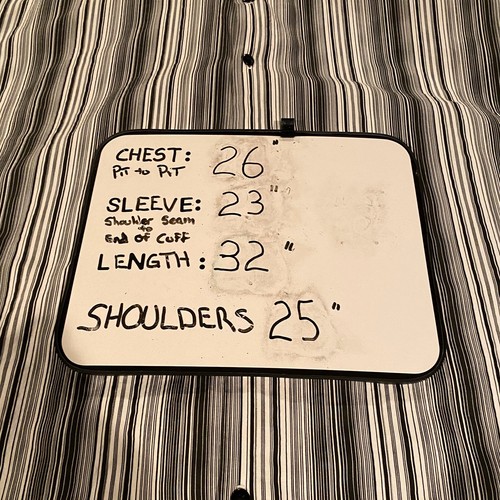 CHEST: 26"
PiT to PiT
SLEEVE: 23"
Shoulder Seam
to
End of Cuff
LENGTH: 32"
SHOULDERS 25"